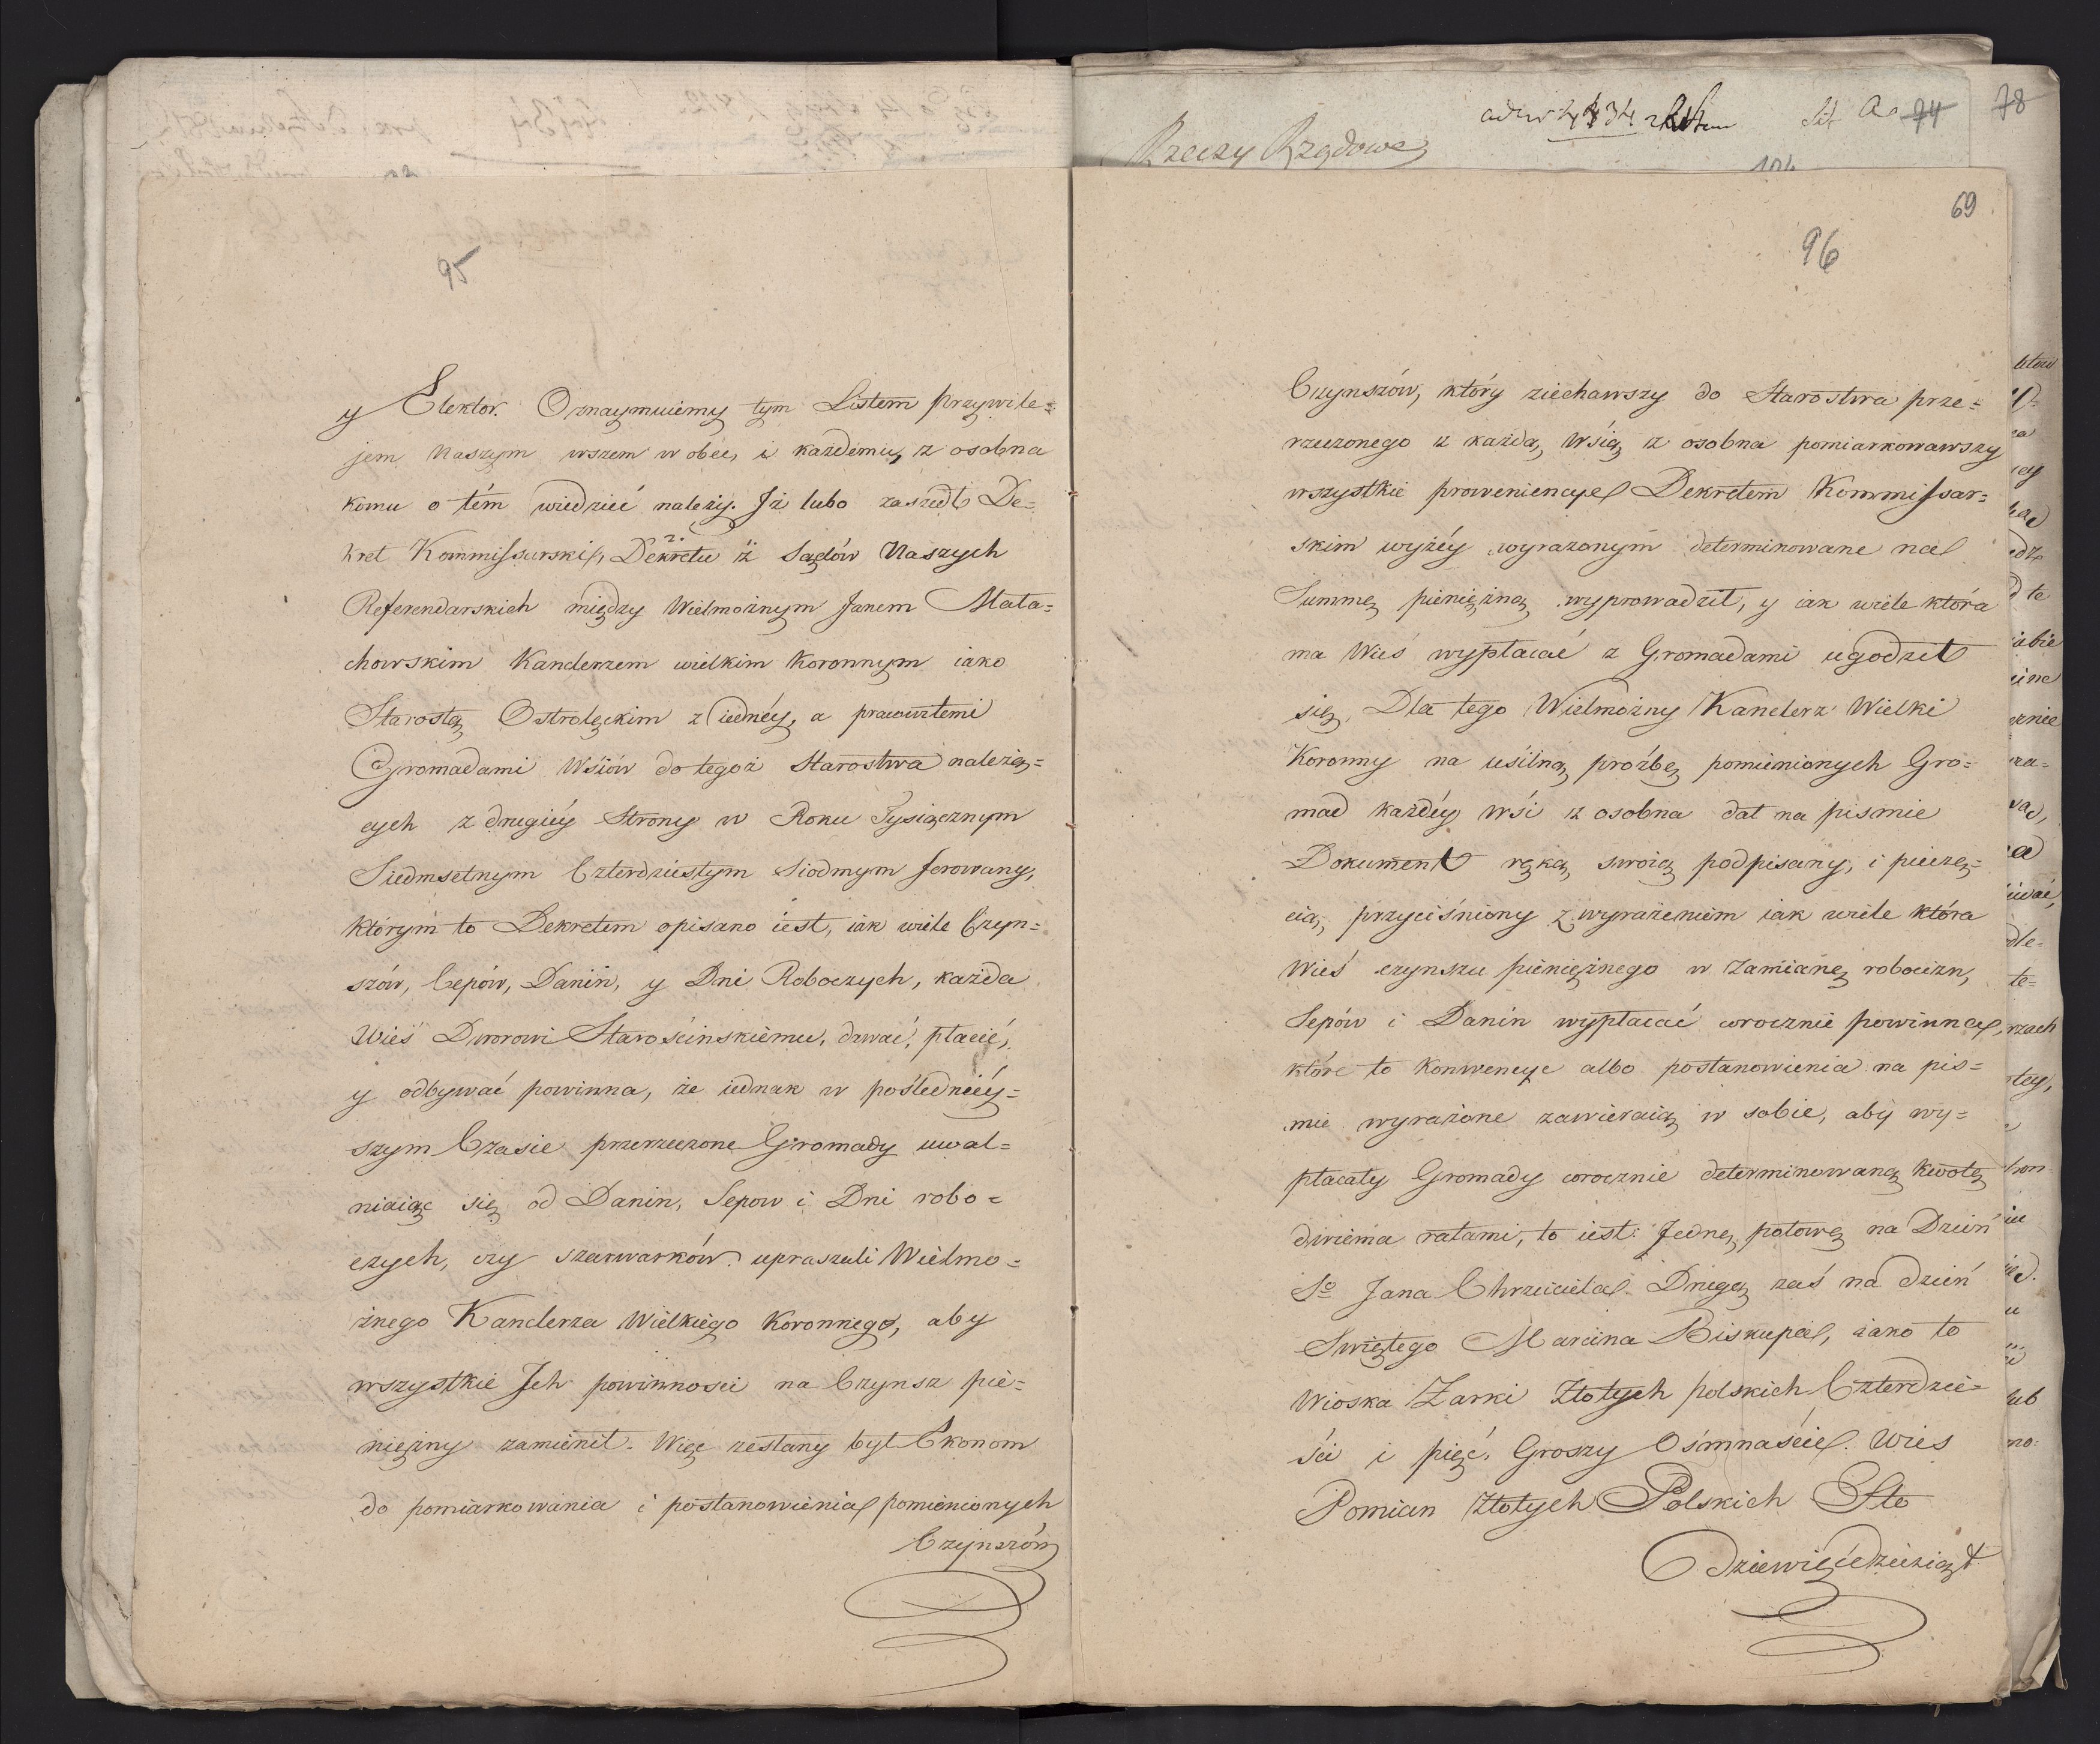 95
y Elektor. Oznaymuiemy tym Listem przywile=
jem Naszym wszem w obec, i każdemu, z osobna
komu o tém wiedzieć należy. Jż lubo zaszedł De=
kret Kommissarski, z Dekretu iż Sądów Naszych
Referendarskich między Wielmożnym Janem Mała=
chowskim Kanclerzem wielkim Koronnym iako
Starostą Ostrołęckim z iednéy, a pracowitemi
Gromadami Wsiów do tegoż Starostwa należą=
cych z drugiéy Strony w Roku Tysiącznym
Siedmsetnym Czterdziestym Siodmym ferowany,
którym to Dekretem opisano iest, iak wiele Czyn=
szów, Sepów, Danin, y Dni Roboczych, każda
Wieś Dworowi Starościnskiemu, dawać, płacić,
y odbywać powinna, że iednak w pośledniéy=
szym Czasie przerzeczone Gromady uwal=
niaiąc się od Danin, Sepow i Dni robo=
czych, czy szarwarków upraszali Wielmo=
żnego Kanclerza Wielkiego Koronnego, aby
wszystkie Jch powinnosci na Czynsz pie=
niężny zamienił. Więc zesłany był Ekonom
do pomiarkowania i postanowienia pomienionych
Czynszów
Rzeczy Rządowe
Lit a 74
78
69
96
Czynszów, który ziechawszy do Starostwa prze=
rzeczonego z każdą Wsią z osobna pomiarkowawszy
wszystkie prowencye Dekretem Kommissar=
skim wyżéy wyrażonym determinowane na
Summę pieniężną wyprowadził, y iak wiele która
ma Wieś wypłacać z Gromadami ugodził
się, Dla tego Wielmożny Kanclerz Wielki
Koronny na usilną prożbę pomienionych Gro=
mad każdéy wśi z osobna dał na pismie
Dokument ręką swoią podpisany, i pieczę=
cią, przyciśniony z wyrażeniem iak wiele która
Wieś czynszu pieniężnego w Zamianę robocizn,
Sepów i Danin wypłacać corocznie powinna,
które to Konwencye albo postanowienia na pis=
mie wyrażone zawieraią w sobie, aby wy=
płacały Gromady corocznie determinowaną kwotę
dwiema ratami, to iest: Jednę połowę na Dzień
So Jana Chrzciciela. Drugą zaś na dzień
Swiętego Marcina Biskupa, iako to
Wioska Żarki Złotych polskich Czterdzie=
ści i pięć, Groszy Ośmnaście. Wies
Pomian Złotych Polskich Sto
Dziewięćdziesiąt